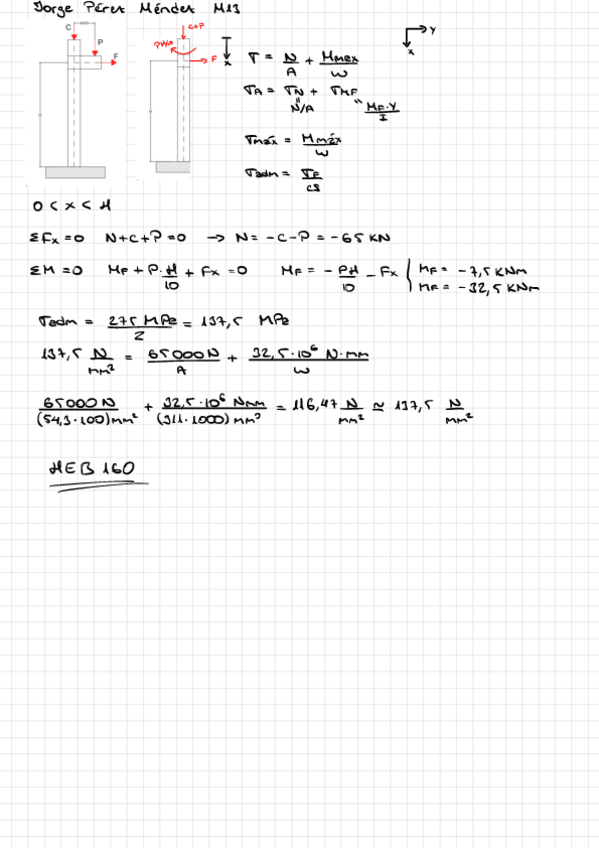 Jorge Pérez Méndez M13
C
P
F
C+P
PH/10
F
x
y
x
σ = N/A + Mmax/W
σA = σN + σMF
N/A
MF·Y/I
σmáx = Mmáx/W
σadm = σe/CS
0 < x < H
ΣFx = 0 N+C+P = 0 → N = -C-P = -65 KN
ΣM = 0 MF + P·H/10 + Fx = 0 MF = -PH/10 - Fx
MF = -7,5 KNm
MF = -32,5 KNm
σadm = 275 MPa/2 = 137,5 MPa
137,5 N/mm² = 65000N/A + 32,5·10⁶ N·mm/W
65000N/(54,3·100)mm² + 32,5·10⁶ Nmm/(311·1000)mm³ = 116,47 N/mm² ≃ 137,5 N/mm²
HEB 160